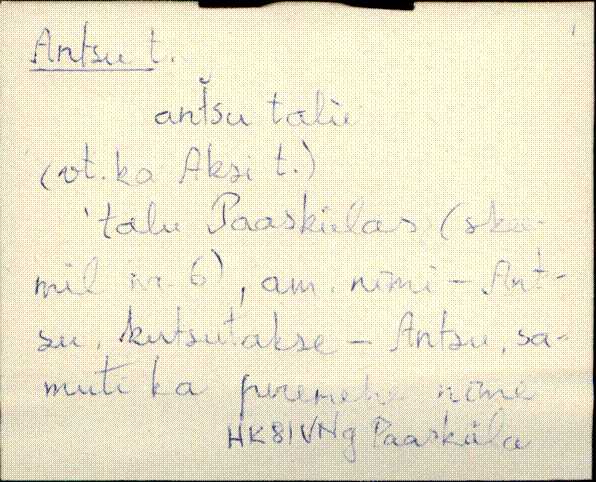 Antsu t.
antsu talu
(vt. ka Aksi t.)
'talu Paaskülas (ska-
mil nr. 6), am. nimi – Ant-
su, kutsutakse – Antsu, sa-
muti ka peremehe nime
HK81VNg Paasküla